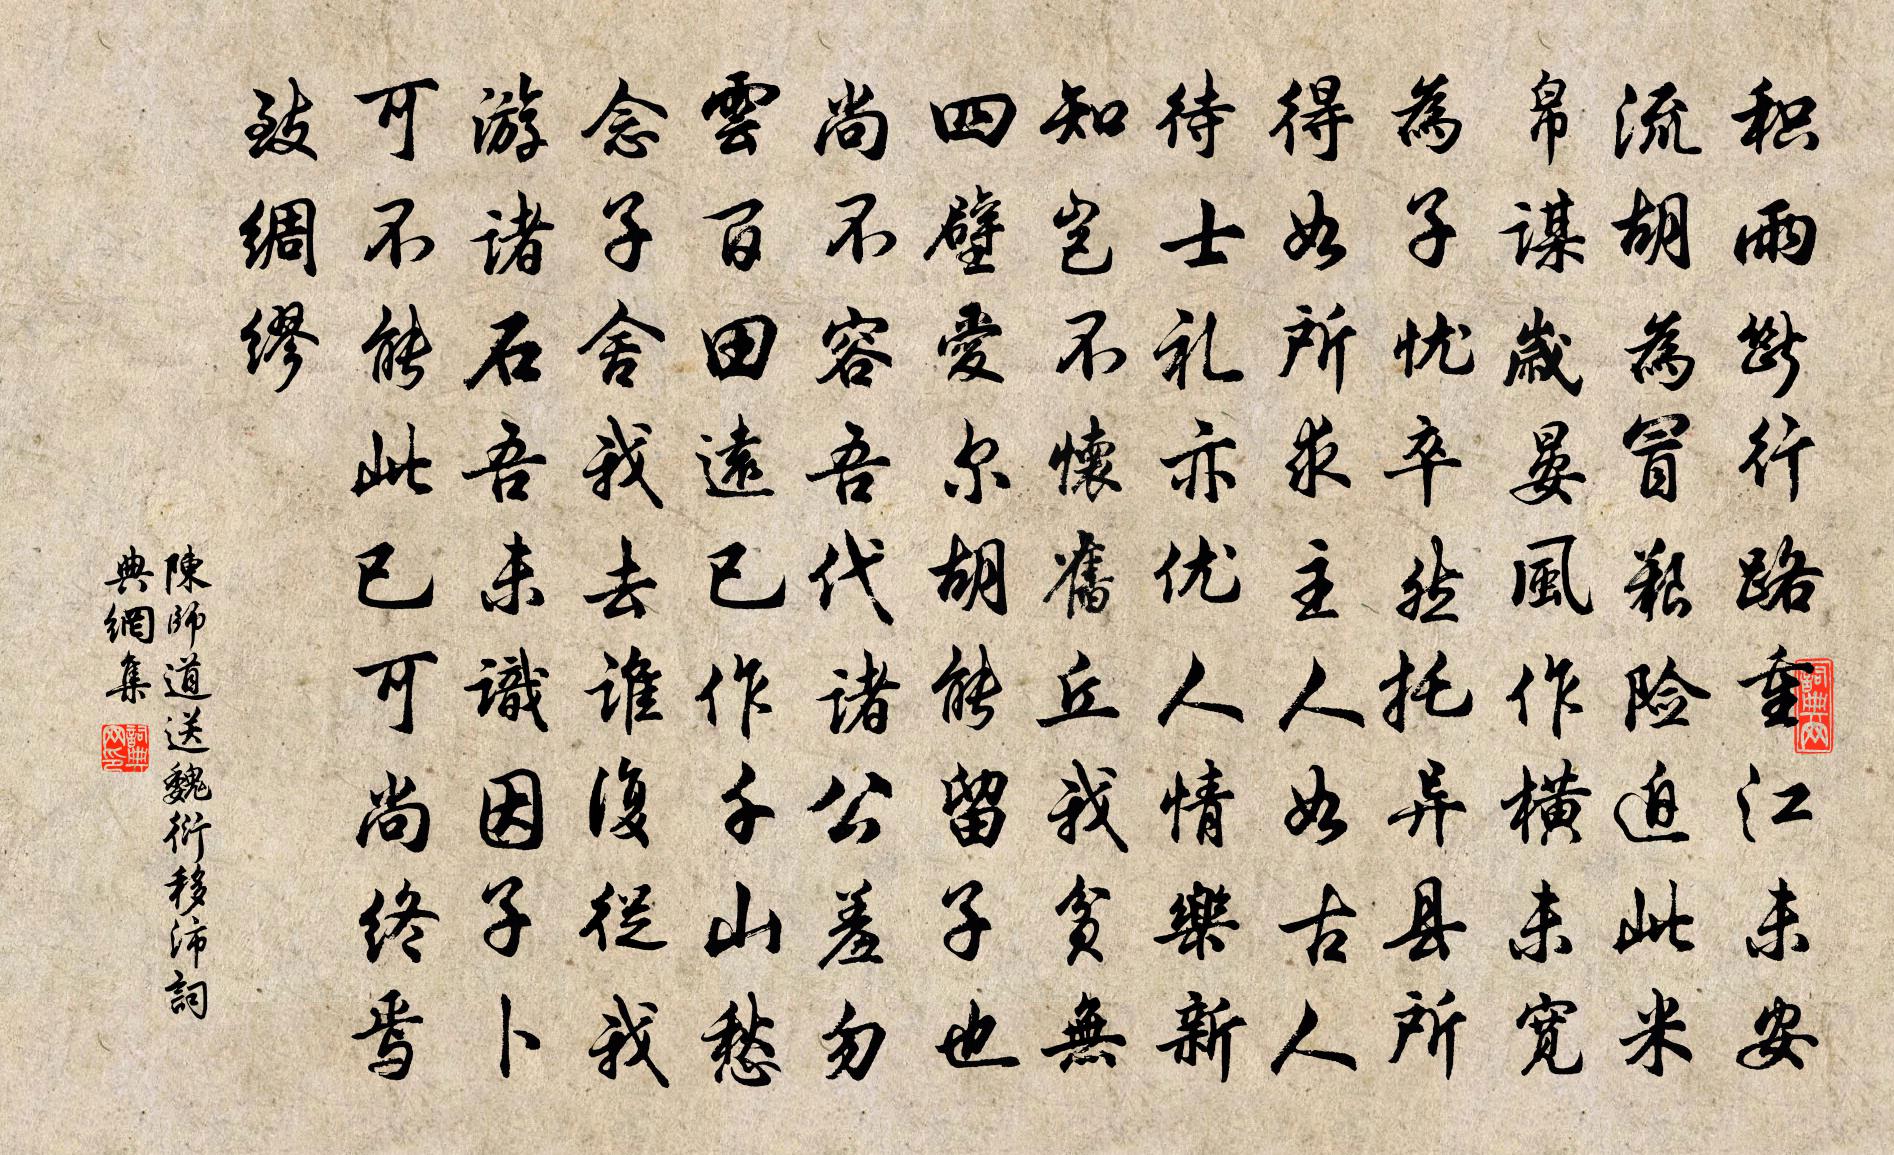 积雨断行路重江未安
流胡為冒艱险迫此米
帛谋歲晏風作橫未寬
為子忧卒然托异县所
得如所求主人如古人
待士礼亦优人情樂新
知岂不懷舊丘我贫無
四壁爱尔胡能留子也
尚不容吾代诸公羞勿
雲百里遠已作千山愁
念子舍我去谁復從我
游诸石吾未識因子卜
可不能此已可尚终焉
致绸缪
陳師道送魏衍移沛詞
典網集
詞典网
詞典网印